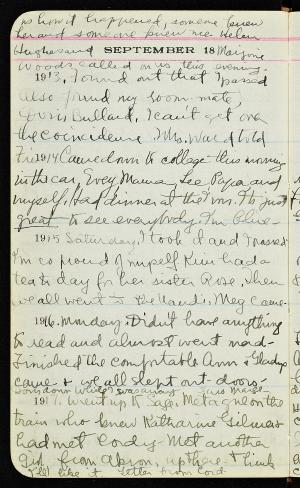 is how it happened, someone knew
her and someone knew me Helen
Hughes and SEPTEMBER 18 Marjorie
Woods called on us this evening
1913. Found out that I passed
also found my room-mate,
Doris Bullard, I can't get over
the coincidence. Mrs. Ward told
1914 Came down to college this morning
in the car, Evey Mama, Lee Papa and
myself. Had dinner at the Inn. It's just
great to see everybody. I'm Blue-
1915 Saturday. I took it and I passed
I'm so proud of myself Kim had a
tea to day for her sister Rose, then
we all went to the Meg came-
1916. Monday. Didn't have anything
to read and almost went mad-
Finished the comfortable Ann Gladys
came & we all slept out-doors
down while I was away
1917. Went up to Met a girl on the
train who knew Katharine Gilman
had met Cordy- Met another
girl from Akron, up there I think
I'll like it. Letter from Cord